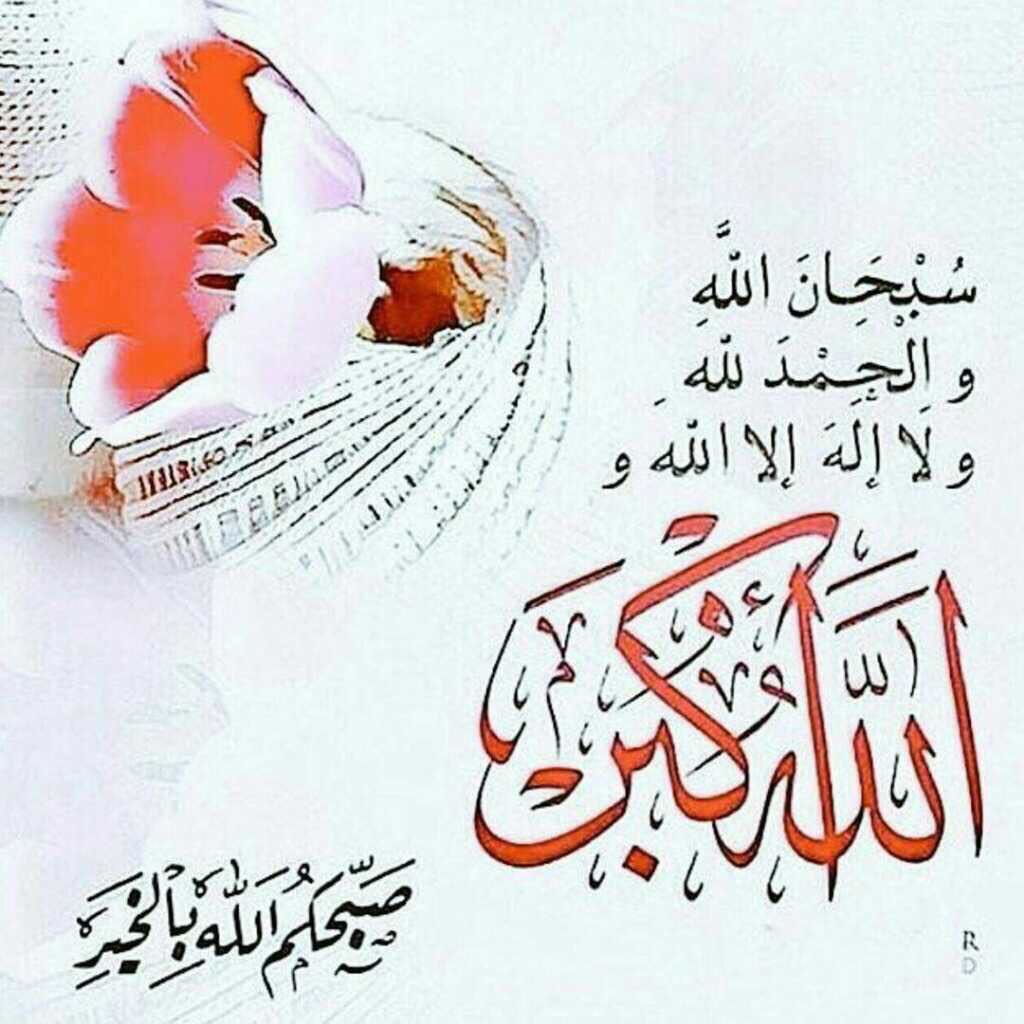 سُبْحَانَ اللَّهِ
و الْحِمْدَ للهِ
و لَا إِلَهَ إلا الله و
اللَّه أَكْبَر
صَبَّحَكُم اللَّه بِالْخَيرِ
R
D